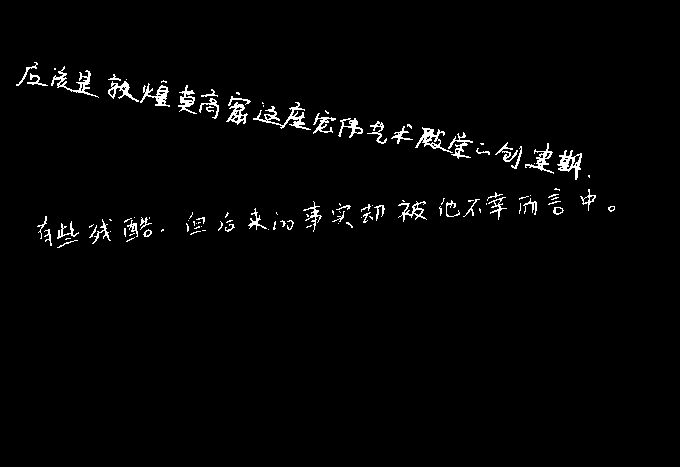 应该是敦煌莫高窟这座宏伟艺术殿堂的创建期.
有些残酷.但后来的事实却被他不幸而言中。